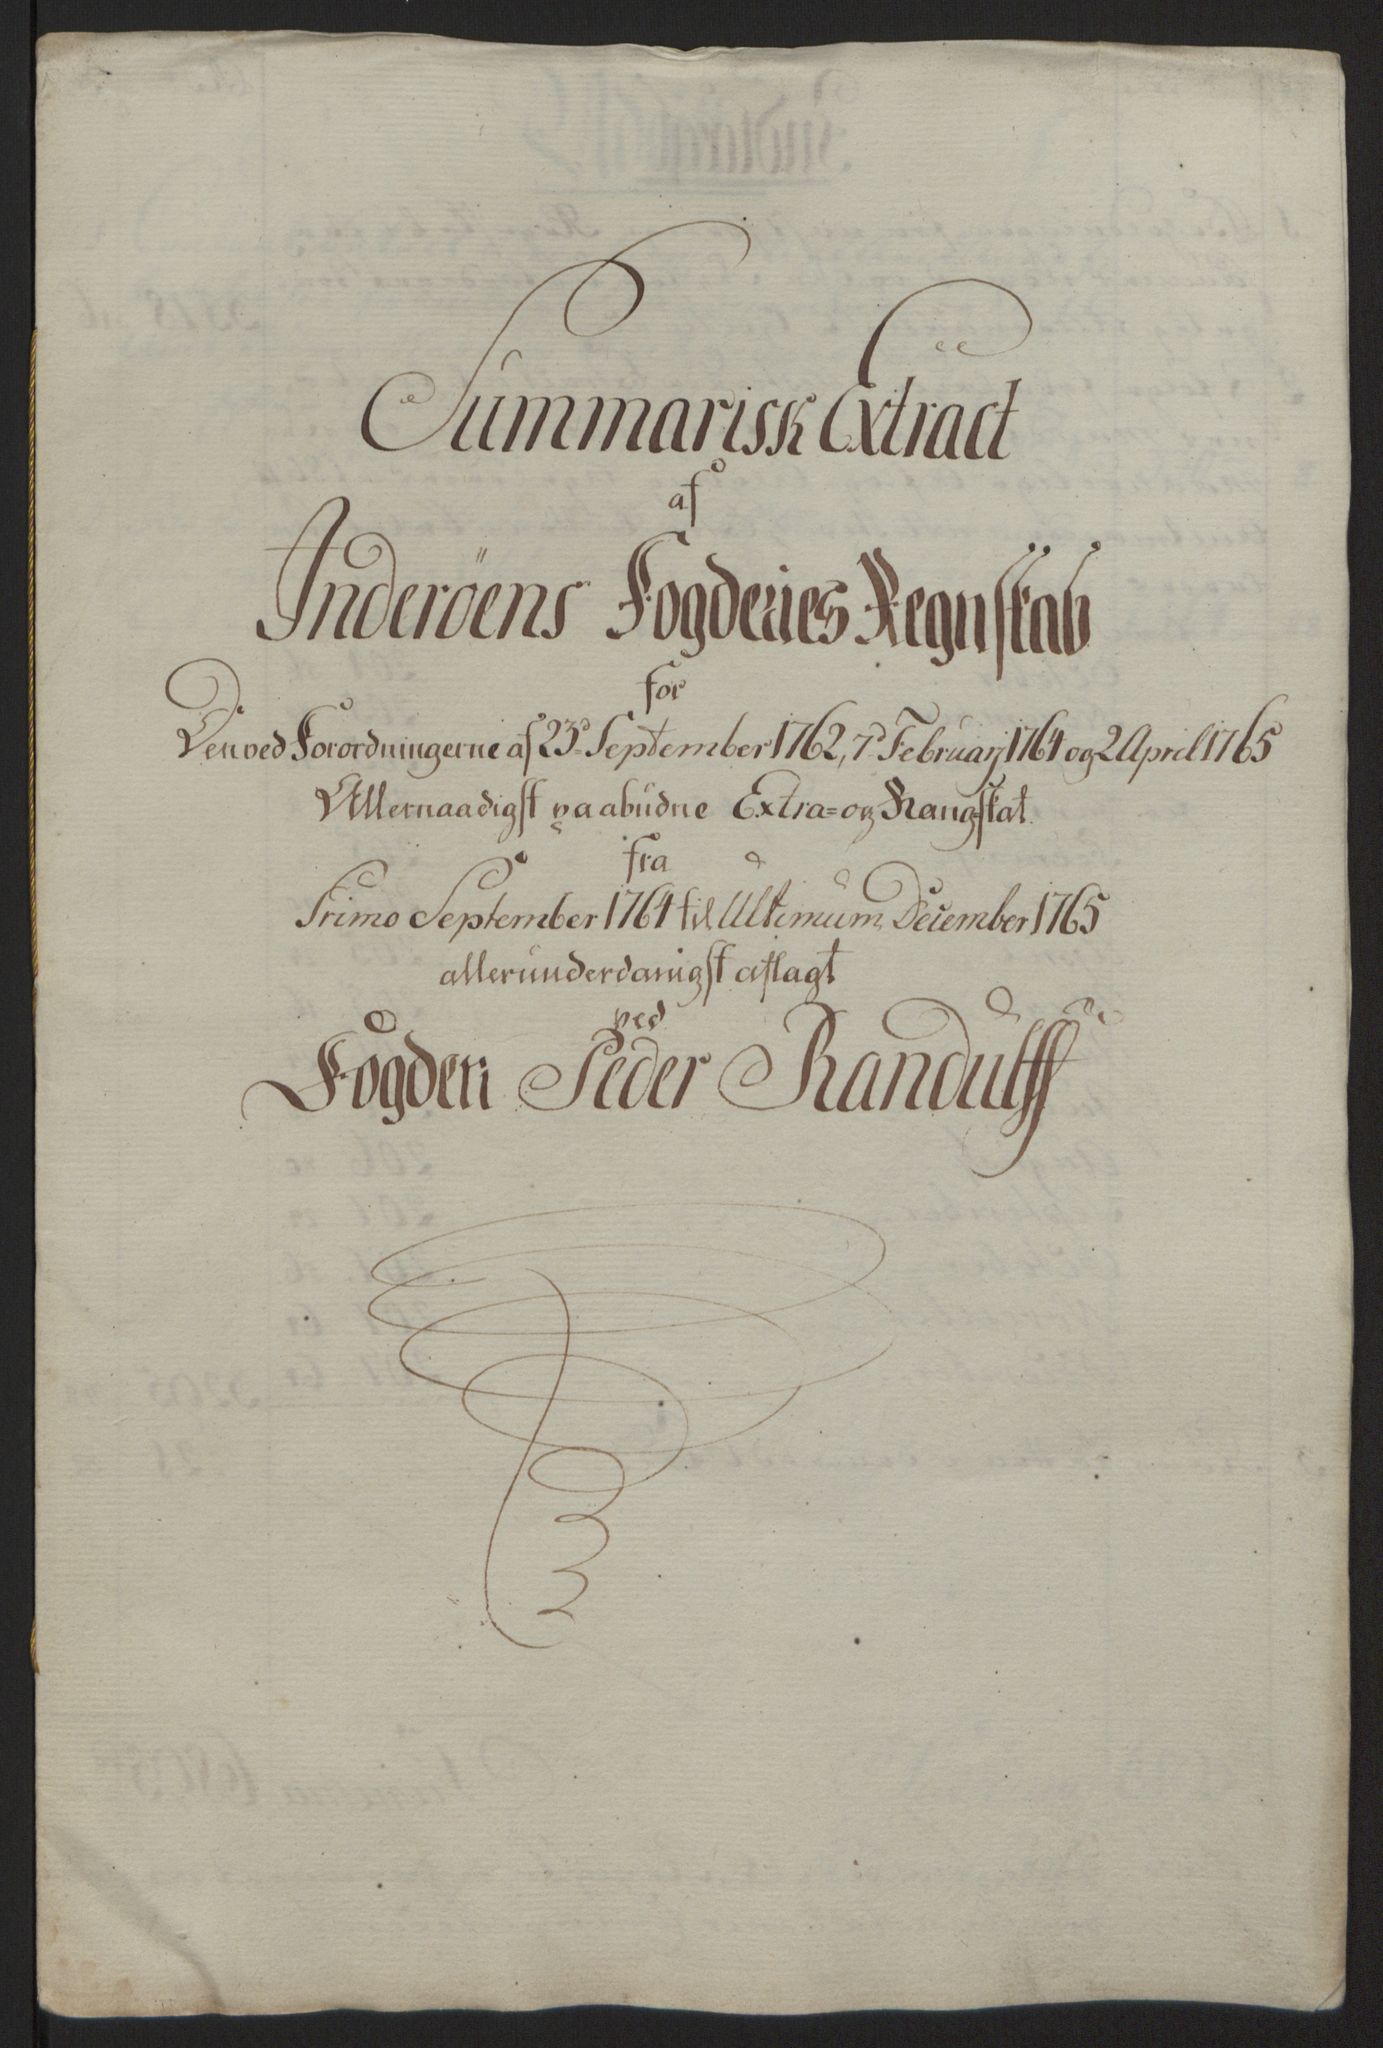 Summarisk Extract
af
Inderöens Fogderies Regnskab
for
Den ved Forordningerne af 23d September 1762, 7d Februarj 1764 og 2 April 1765
Allernaadigst paabudne Extra= og Rangskat
fra
Primo September 1764 til Ultimum December 1765
allerunderdanigst aflagt
ved
Fogden Peder Randulff